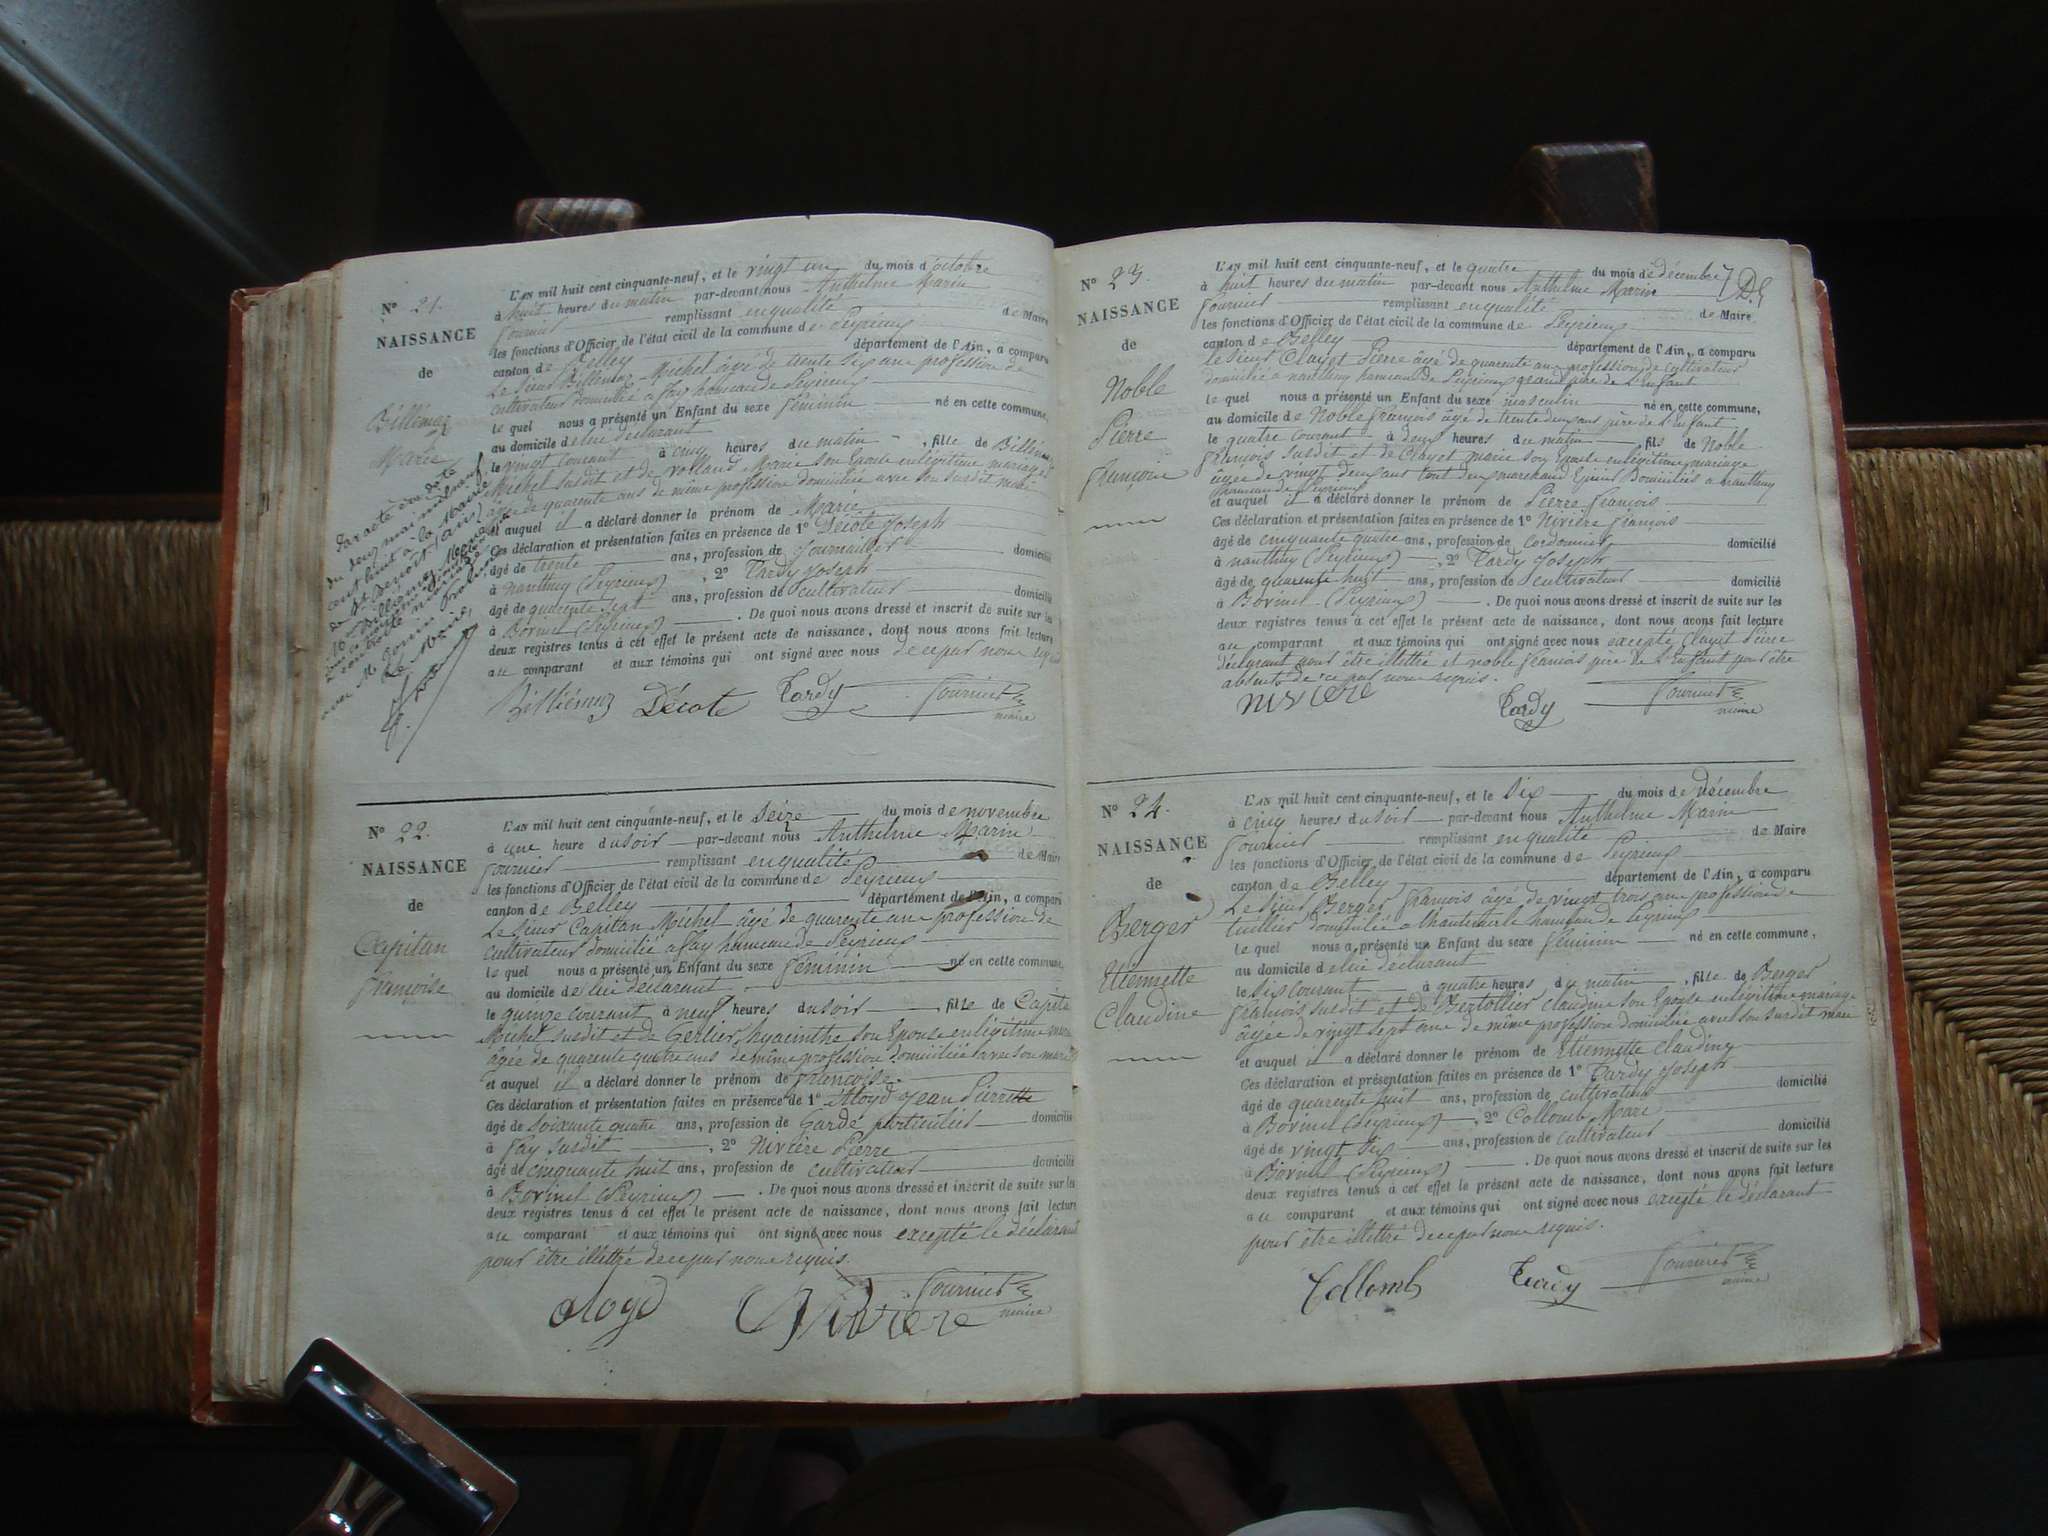 N° 21.
NAISSANCE
de
Billiémaz
Marie
L'AN mil huit cent cinquante-neuf, et le vingt un du mois d'octobre
à huit heures du matin par-devant nous Anthelme Marin
Fournier remplissant en qualité de Maire
les fonctions d'Officier de l'état civil de la commune de Peyrieux
canton de Belley département de l'Ain, a comparu
Le sieur Billiémaz Michel âgé de trente six ans profession de
cultivateur domicilié à Fay hameau de Peyrieux
le quel nous a présenté un Enfant du sexe féminin né en cette commune,
au domicile de lui déclarant
le vingt courant à cinq heures du matin, fille de Billiémaz
Michel susdit et de Rolland Marie son Epouse en légitime mariage
âgée de quarente ans de même profession domiciliée avec son susdit mari
et auquel il a déclaré donner le prénom de Marie
Ces déclaration et présentation faites en présence de 1° Décote Joseph
âgé de trente ans, profession de journallier domicilié
à Nanthuy (Peyrieux), 2° Tardy Joseph
âgé de quarente sept ans, profession de cultivateur domicilié
à Borinel (Peyrieux). De quoi nous avons dressé et inscrit de suite sur les
deux registres tenus à cet effet le présent acte de naissance, dont nous avons fait lecture
au comparant et aux témoins qui ont signé avec nous de ce par nous requis
Billiémaz Décote Tardy Fournier
maire
Par acte en date
du deux mai mil neuf
cent huit à la Mairie
Le Maire,
N° 22.
NAISSANCE
de
Capitan
Françoise
L'AN mil huit cent cinquante-neuf, et le seize du mois de novembre
à une heure du soir par-devant nous Anthelme Marin
Fournier remplissant en qualité de Maire
les fonctions d'Officier de l'état civil de la commune de Peyrieux
canton de Belley département de l'Ain, a comparu
Le sieur Capitan Michel âgé de quarente ans profession de
cultivateur domicilié à Fay hameau de Peyrieux
le quel nous a présenté un Enfant du sexe féminin né en cette commune,
au domicile de lui déclarent
le quinze courant à neuf heures du soir, fille de Capita
Michel susdit et de Gerlier hyacinthe son Epouse en légitime mari
âgée de quarente quatre ans de même profession domiciliée avec son mari
et auquel il a déclaré donner le prénom de françoise.
Ces déclaration et présentation faites en présence de 1° Aloyd Jean Pierrette
âgé de soixante quatre ans, profession de Garde particulier domicilié
à Fay susdit, 2° Nivière Pierre
âgé de cinquante huit ans, profession de cultivateur domicilié
à Borinel (Peyrieux). De quoi nous avons dressé et inscrit de suite sur la
deux registres tenus à cet effet le présent acte de naissance, dont nous avons fait lecture
au comparant et aux témoins qui ont signé avec nous excepté le déclarant
pour être illétré de ce par nous requis.
aloyd Nivière Fournier
maire
N° 23.
NAISSANCE
de
Noble
Pierre
François
L'AN mil huit cent cinquante-neuf, et le quatre du mois de décembre
à huit heures du matin par-devant nous Anthelme Marin
Fournier remplissant en qualité de Maire
les fonctions d'Officier de l'état civil de la commune de Peyrieux
canton de Belley département de l'Ain, a comparu
Le sieur Clayet Pierre âgé de quarente ans profession de cultivateur
domicilié à nanthuy hameau de Peyrieux grand père de l'Enfant
le quel nous a présenté un Enfant du sexe masculin né en cette commune,
au domicile de Noble françois âgé de trente deux ans père de l'Enfant
le quatre courant à deux heures du matin fils de Noble
françois susdit et de Clayet marie son Epouse en légitime mariage
âgée de vingt deux ans tout deux marchand Domiciliés à nanthuy
hameau de Peyrieux
et auquel il a déclaré donner le prénom de Pierre françois
Ces déclaration et présentation faites en présence de 1° Nivière françois
âgé de cinquante quatre ans, profession de cordonnier domicilié
à nanthuy (Peyrieux), 2° Tardy Joseph
âgé de quarente huit ans, profession de cultivateur domicilié
à Borinel (Peyrieux). De quoi nous avons dressé et inscrit de suite sur les
deux registres tenus à cet effet le présent acte de naissance, dont nous avons fait lecture
au comparant et aux témoins qui ont signé avec nous excepté Clayet Pierre
déclarant pour être illettré et noble françois père de l'Enfant pour être
absent de ce par nous requis.
nivière Tardy Fournier
maire
N° 24.
NAISSANCE
de
Berger
Etiennette
Claudine
L'AN mil huit cent cinquante-neuf, et le six du mois de décembre
à cinq heures du soir par-devant nous Anthelme Marin
Fournier remplissant en qualité de Maire
les fonctions d'Officier de l'état civil de la commune de Peyrieux
canton de Belley département de l'Ain, a comparu
Le sieur Berger françois âgé de vingt trois ans profession de
tuillier domicilié à hameau de Peyrieux
le quel nous a présenté un Enfant du sexe féminin né en cette commune,
au domicile de lui déclarant
le six courant à quatre heures du matin, fille de Berger
françois susdit et de Bertollier claudine son Epouse en légitime mariage
âgée de vingt sept ans de même profession domiciliée avec son susdit mari
et auquel il a déclaré donner le prénom de Etiennette claudine
Ces déclaration et présentation faites en présence de 1° Tardy Joseph
âgé de quarente huit ans, profession de cultivateur domicilié
à Borinel (Peyrieux), 2° Collomb Marc
âgé de vingt six ans, profession de cultivateur domicilié
à Borinel (Peyrieux). De quoi nous avons dressé et inscrit de suite sur les
deux registres tenus à cet effet le présent acte de naissance, dont nous avons fait lecture
au comparant et aux témoins qui ont signé avec nous excepté le déclarant
pour être illettré de ce par nous requis.
Collomb Tardy Fournier
maire